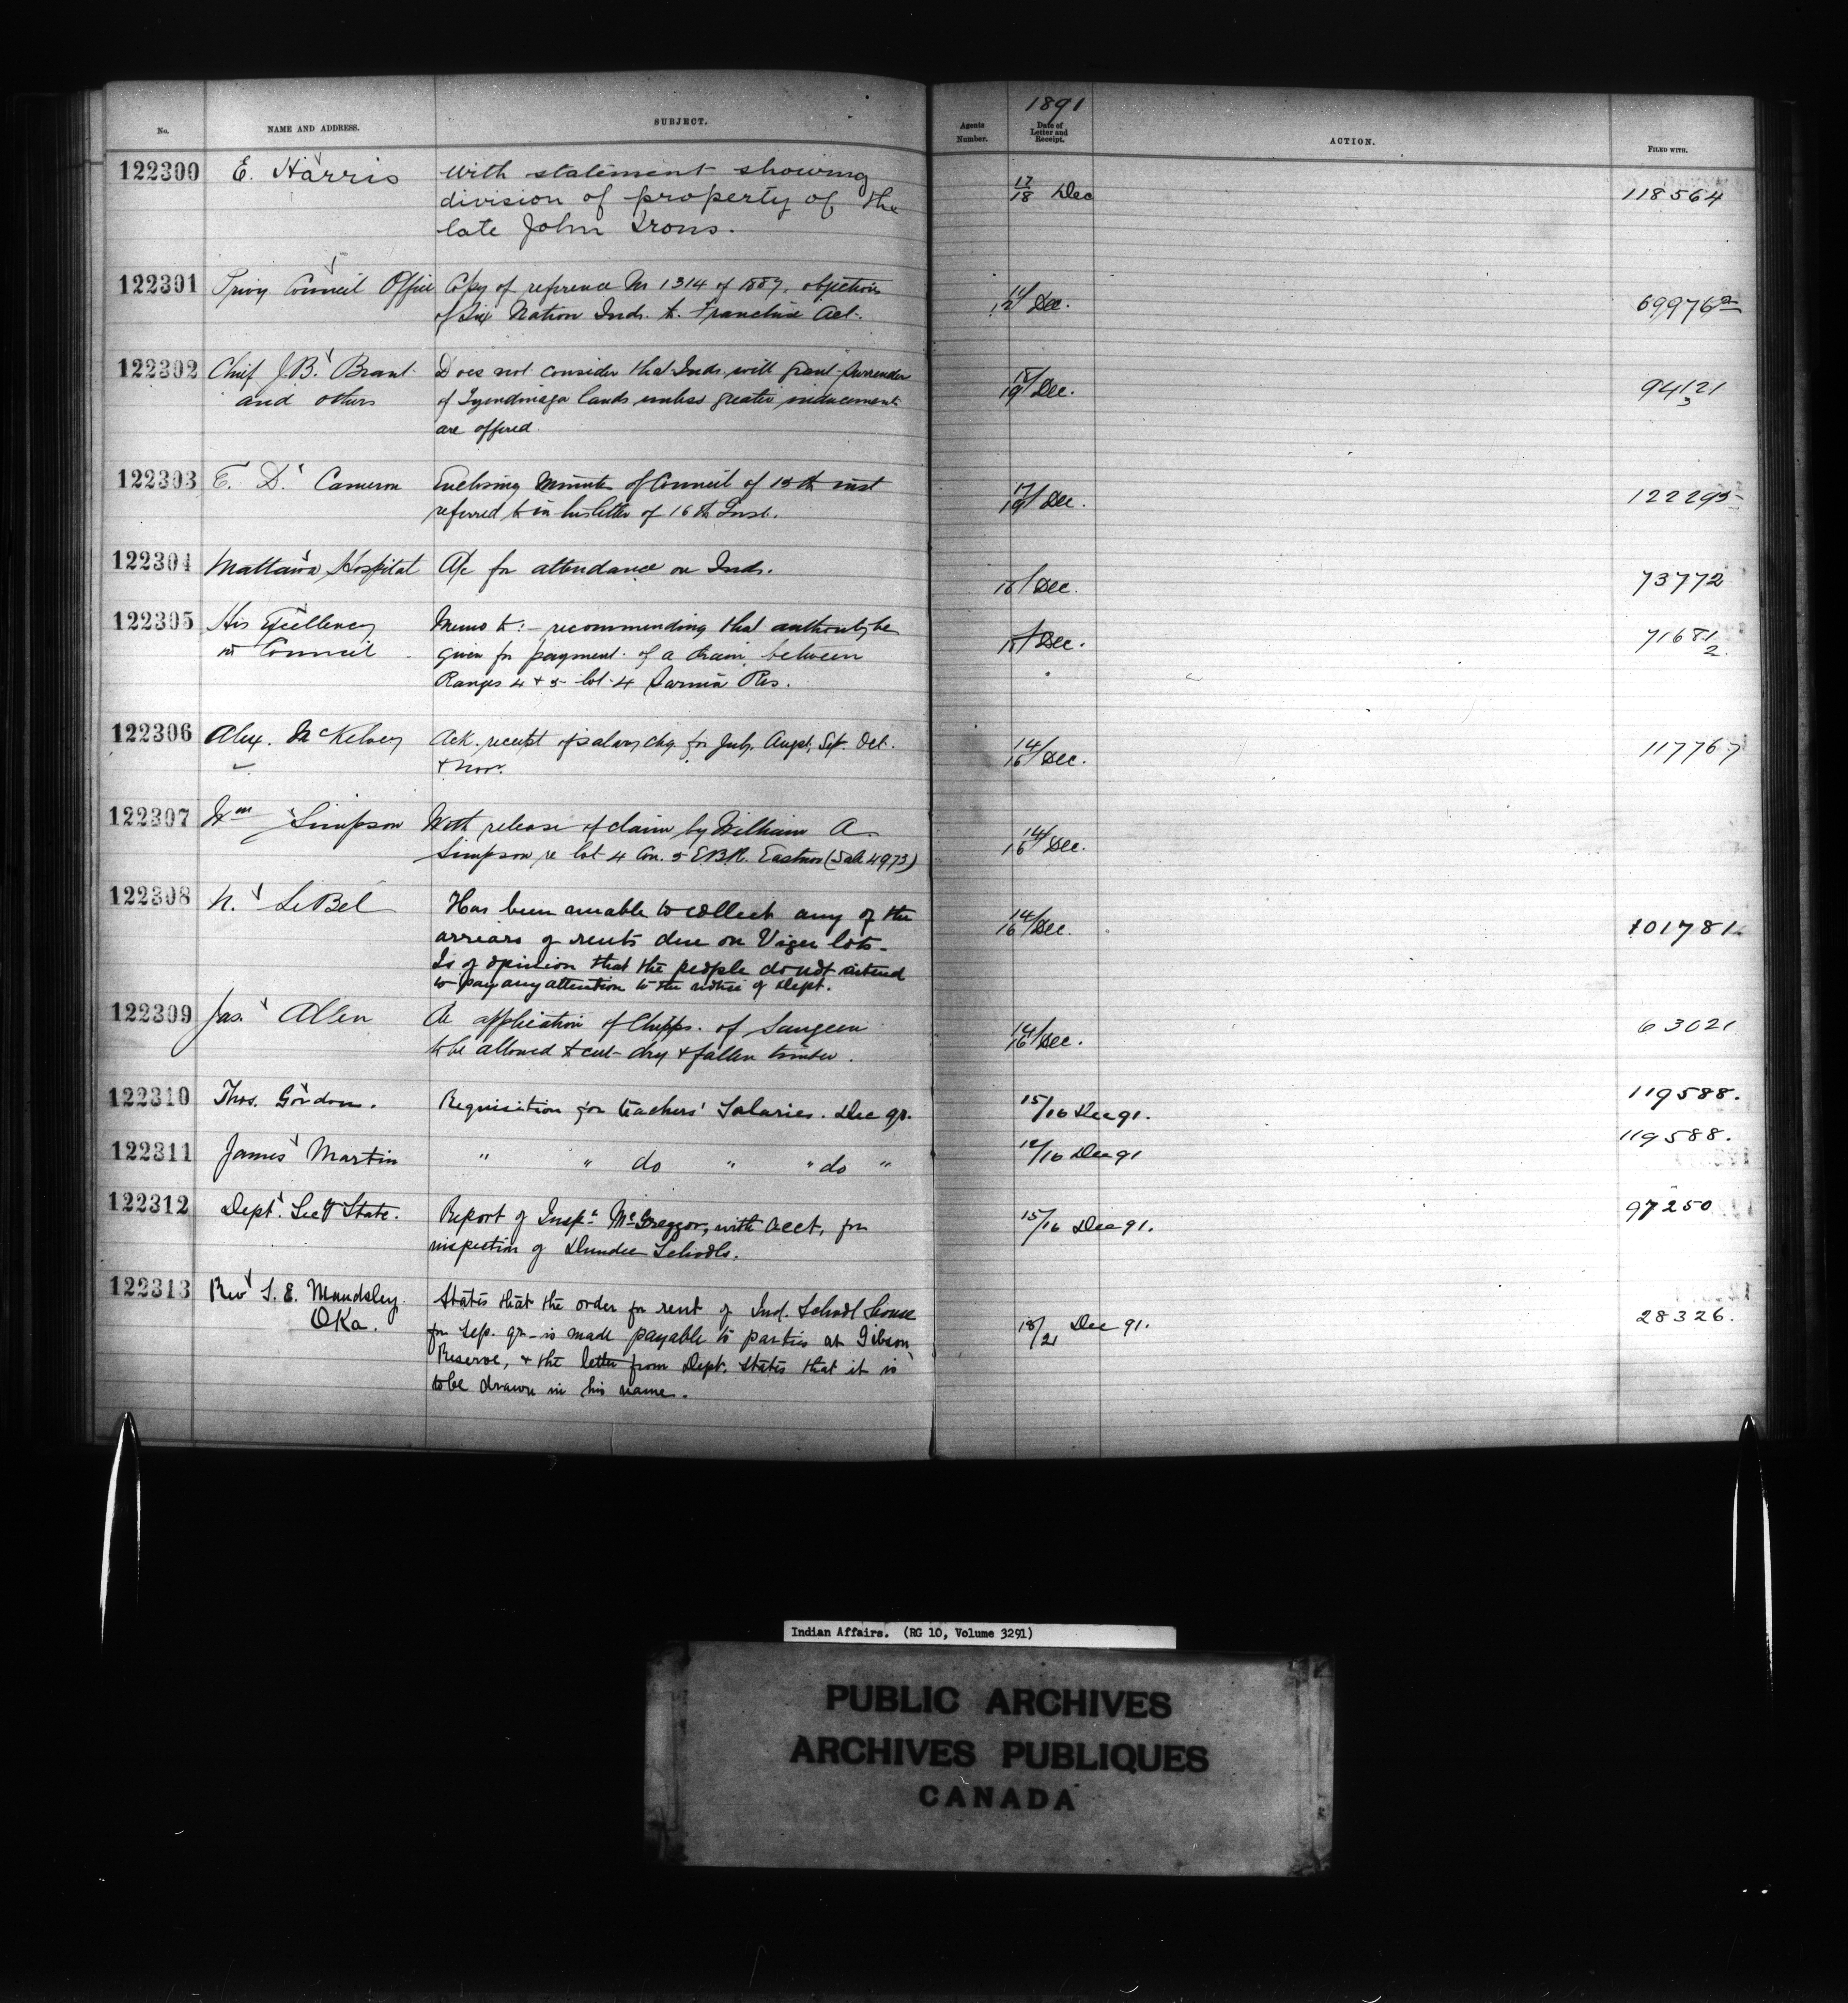 1891
No. NAME AND ADDRESS. SUBJECT. Agents Number. Date of Letter and Receipt. ACTION. FILED WITH.
122300 E. Harris with statement showing 17/18 Dec 118564
division of property of the
late John Irons.
122301 Privy Council Office Copy of reference No 1314 of 1887. objections Dec. 69976-2
of Six Nation Inds. to Franchise Act.
122302 Chief J.B. Brant Does not consider that Inds. will grant surrender 18/19 Dec. 94121 3
and others of Tyendinaga lands unless greater inducements
are offered.
122303 E. D. Cameron Enclosing Minutes of Council of 15th inst 17/19 Dec. 122295
referred to in his letter of 16th Inst.
122304 Mattawa Hospital A/c for attendance on Inds. 16/ Dec. 73772
122305 His Excellency Memo to:- recommending that authority be Dec. 71681 2
in Council given for payment of a drain between
Ranges 4 & 5 lot 4 Sarnia Res.
122306 Alex. McKelvey Ack. receipt of salary chq. for July, Augt, Sep. Oct. 14/16 Dec. 117767
& Nov.
122307 Wm Simpson With release of claim by William A. 14/16 Dec.
Simpson re lot 4 Con. 5 E.B.R. Eastnor (Sale 4973)
122308 N. LeBel Has been unable to collect any of the 14/16 Dec. 101781
arrears of rents due on Viger lots.
Is of opinion that the people do not intend
to pay any attention to the notice of Dept.
122309 Jas. Allen Re application of Chipps. of Saugeen 14/16 Dec. 63021
to be allowed to cut dry & fallen timber.
122310 Thos. Gordon. Requisition for teachers' Salaries. Dec qr. 15/16 Dec 91. 119588.
122311 James Martin " " do " " do " 12/16 Dec 91 119588.
122312 Dept. Secy State. Report of Inspr McGreggor, with acct, for 15/16 Dec 91. 97250
inspection of Dundee Schools.
122313 Rev S. E. Maudsley. States that the order for rent of Ind. School house 18/21 Dec 91. 28326.
Oka. for Sep. qr. is made payable to parties at Gibson
Reserve, & the letter from Dept. states that it is
to be drawn in his name.
Indian Affairs. (RG 10, Volume 3291)
PUBLIC ARCHIVES
ARCHIVES PUBLIQUES
CANADA